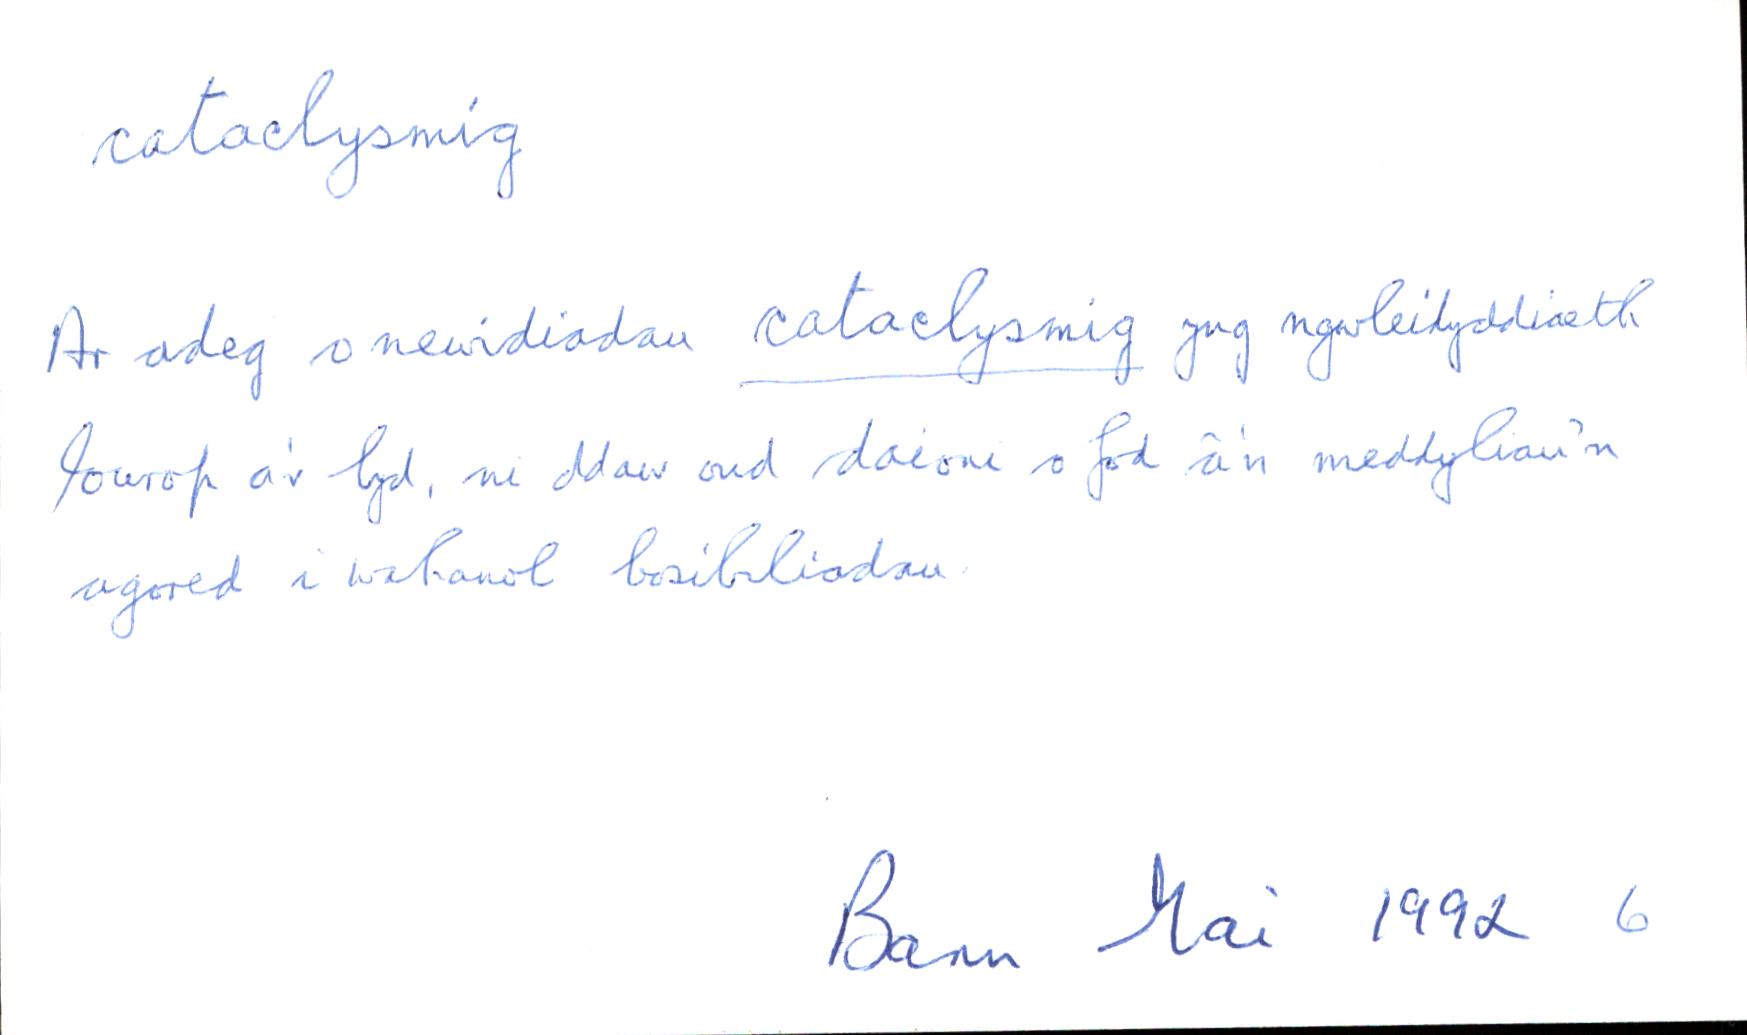 cataclysmig
Ar adeg o newidiadau cataclysmig yng ngwleidyddiaeth
Iowrop a'r byd, ni ddaw ond daioni o fod â'n meddyliau'n
agored i wahanol bosibiliadau.
Barn Mai 1992 6